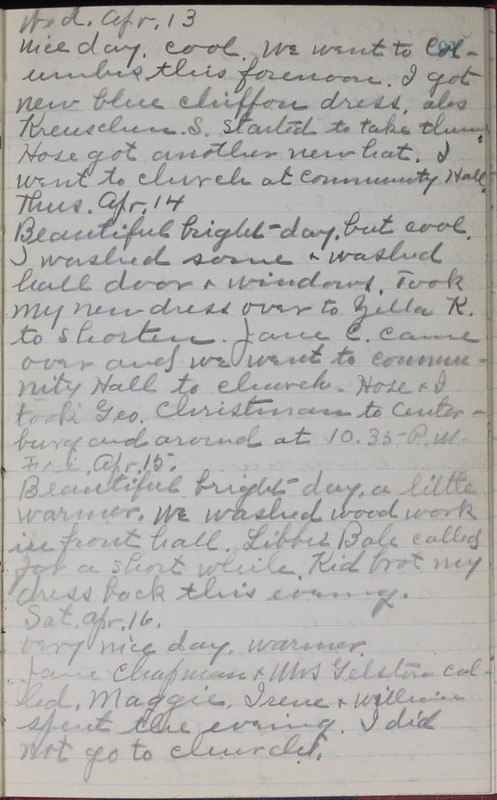 Wed. Apr. 13
Nice day. cool. We went to Col-
umbus this forenoon. I got
new blue chiffon dress. also
Kreuschen S. Started to take them
Hose got another new hat. I
went to church at Community Hall.
Thus. Apr. 14
Beautiful bright day, but cool.
I washed some & washed
hall door & windows. Took
my new dress over to Zella K.
to shorten. Jane C. came
over and we went to commu-
nity Hall to church. Hose & I
took Geo. Christman to Center-
burg and around at 10.35 P.M.
Fri. Apr. 15.
Beautiful bright day, a little
warmer. We washed wood work
in front hall. Libbie Bale called
for a short while. Kid brot my
dress back this evening.
Sat. Apr. 16.
very nice day. warmer.
Jane Chapman & Mrs Gelston cal-
led. Maggie, Irene & William
spent the evening. I did
not go to church.